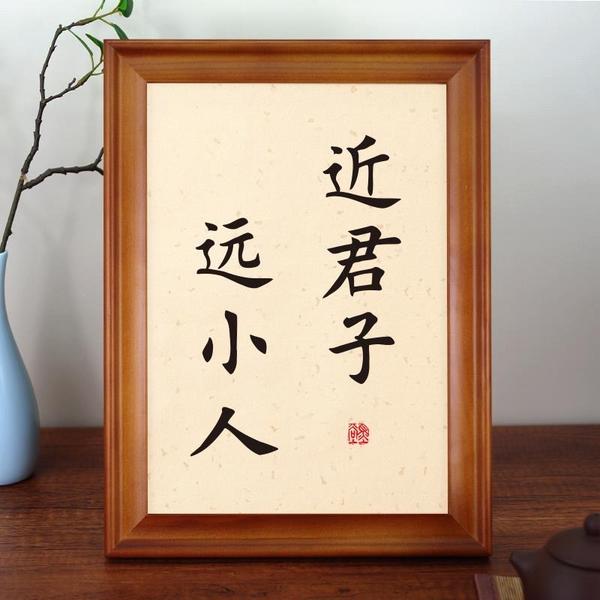 近君子
远小人